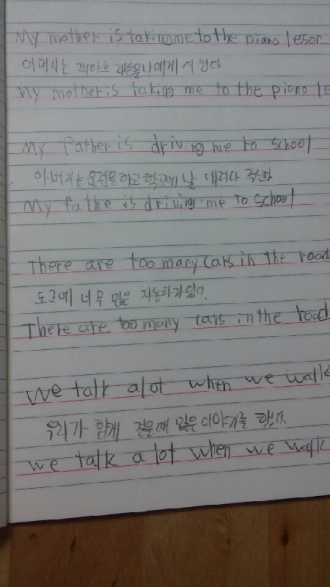 My mother is taking me to the piano leson
어머니는 피아노
my mother is taking me to the piano le
My Father is driving me to school
아버지는 운전을하고 학교에 날 데려다
My fathe is driving me to school
There are too many cars in the road
도로에 너무 많은 자동차가있다.
There are too many cars in the road
we talk alot when we walk
우리가 함께 걸을때 많은이야기를 했다.
we talk a lot when we walk